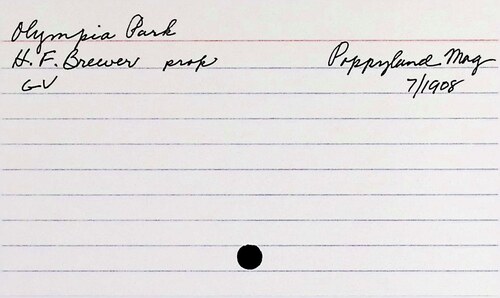 Olympia Park
H. F. Brewer prop Poppyland Mag
GV 7/1908